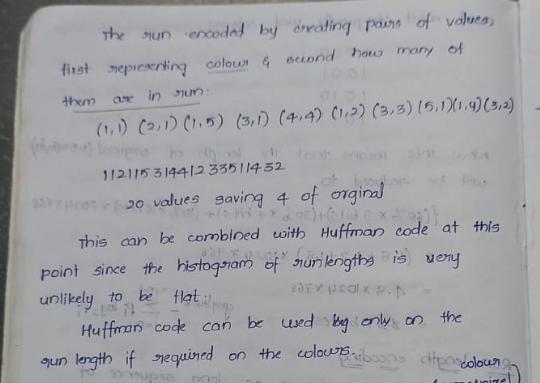 The run encoded by creating pairs of values,
first representing colour & second how many of
them are in run:
(1,1) (2,1) (1,5) (3,1) (4,4) (1,2) (3,3) (5,1)(1,4)(3,2)
11211531441233511432
20 values saving 4 of orginal
This can be combined with Huffman code at this
point since the histogram of runlengths is very
unlikely to be flat.
Huffman code can be used only on the
run length if required on the colours.
colour